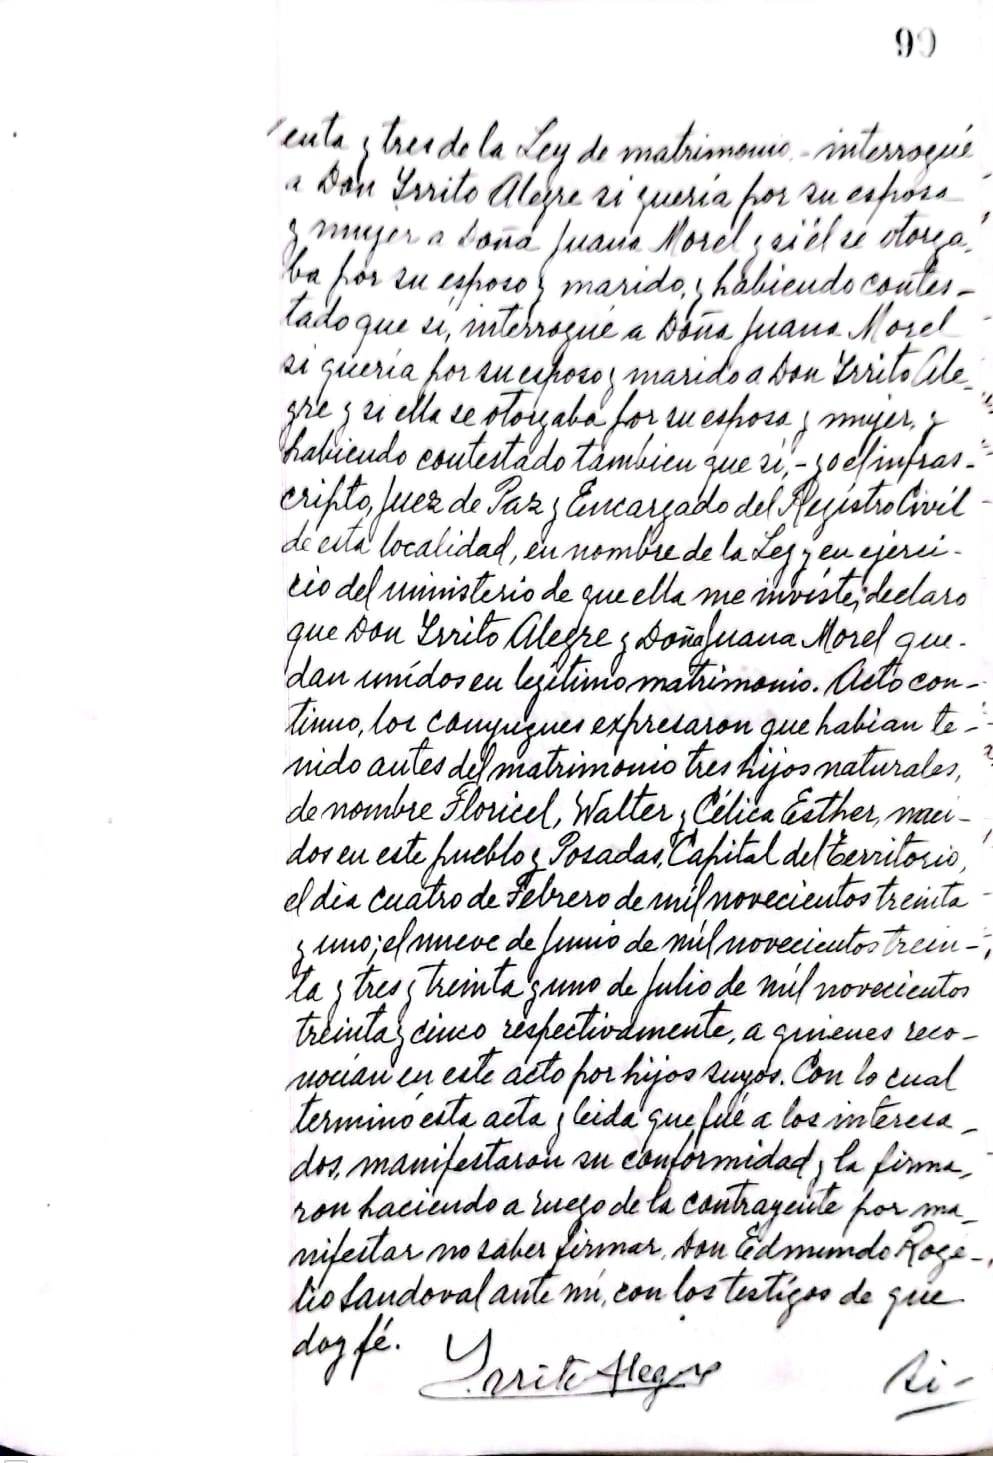 99
enta y tres de la Ley de matrimonio. - interrogué
a Don Yrrito Alegre si quería por su esposa
y mujer a Doña Juana Morel y si él se otorga-
ba por su esposo y marido, y habiendo contes-
tado que sí, interrogué a Doña Juana Morel
si quería por su esposo y marido a Don Yrrito Ale-
gre y si ella se otorgaba por su esposa y mujer, y
habiendo contestado tambien que sí, - yo el infras-
cripto, Juez de Paz y Encargado del Registro Civil
de esta localidad, en nombre de la Ley y en ejerci-
cio del ministerio de que ella me inviste; declaro
que Don Yrrito Alegre y Doña Juana Morel que-
dan unidos en legítimo matrimonio. Acto con-
tinuo, los conyugues expresaron que habian te-
nido antes del matrimonio tres hijos naturales,
de nombre Floricel, Walter y Célica Esther, naci-
dos en este pueblo y Posadas, Capital del Territorio,
el dia cuatro de Febrero de mil novecientos treinta
y uno; el nueve de Junio de mil novecientos trein-
ta y tres y treinta y uno de Julio de mil novecientos
treinta y cinco respectivamente, a quienes reco-
nocian en este acto por hijos suyos. Con lo cual
terminó esta acta y leida que fué a los interesa-
dos, manifestaron su conformidad y la firma-
ron haciendo a ruego de la contrayente por ma-
nifestar no saber firmar, Don Edmundo Roge-
lio Sandoval ante mí, con los testigos de que
doy fé.
Yrrito Alegre
Si-